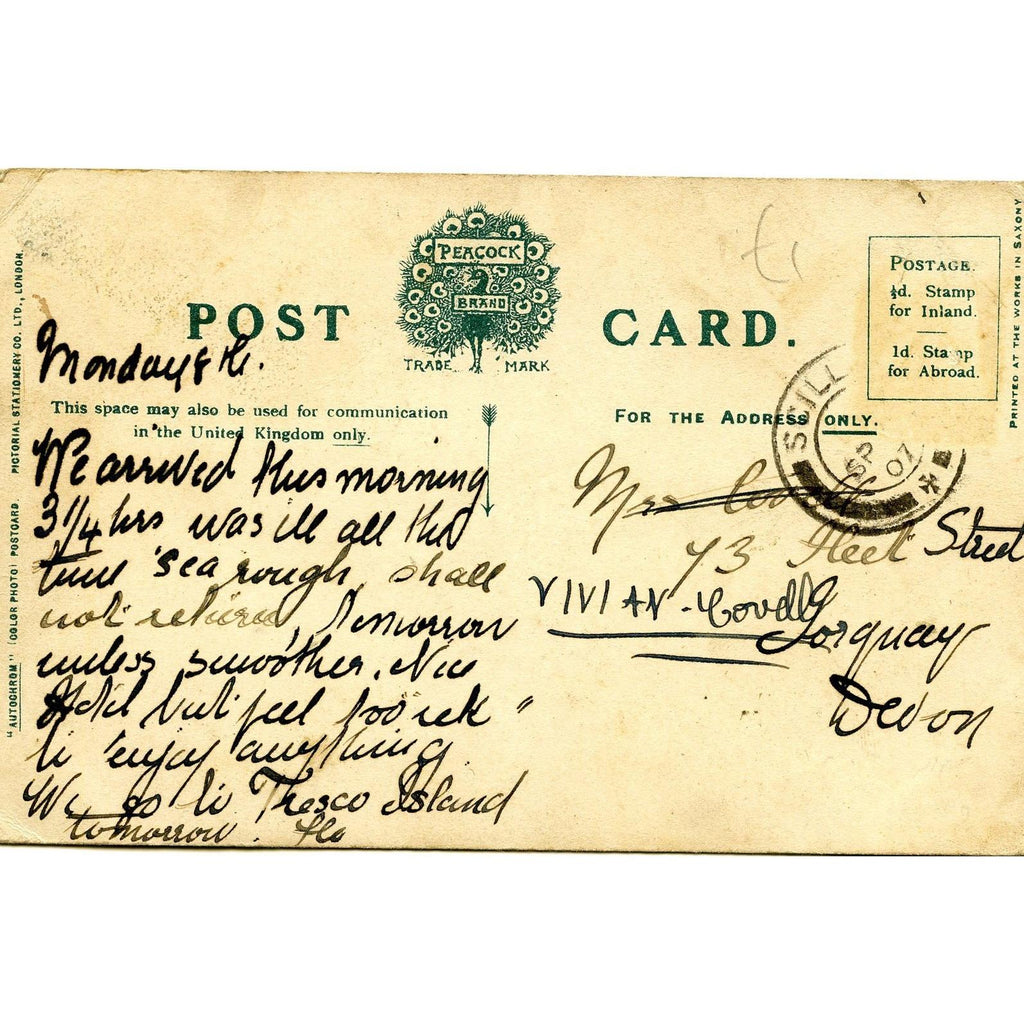 PEACOCK
BRAND
POST CARD.
TRADE MARK
POSTAGE.
½d. Stamp
for Inland.
1d. Stamp
for Abroad.
SCILL
SP
07
This space may also be used for communication
in the United Kingdom only.
FOR THE ADDRESS ONLY.
Monday 8th.
We arrived this morning
3 1/4 hrs was ill all the
time sea rough, shall
not return, tomorrow
unless smoother. Nice
Hotel but feel too sick
to enjoy anything
We go to Tresco Island
tomorrow. Flo
Mrs Covell
73 Fleet Street
VIVIAN - Covell
Torquay
Devon
"AUTOCHROM" (COLOR PHOTO) POSTCARD. PICTORIAL STATIONERY CO. LTD., LONDON.
PRINTED AT THE WORKS IN SAXONY